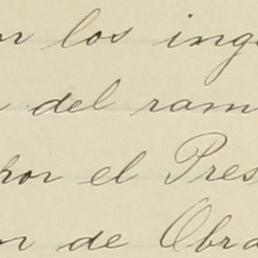 or los ing
del ram
por el Pres
or de Obra